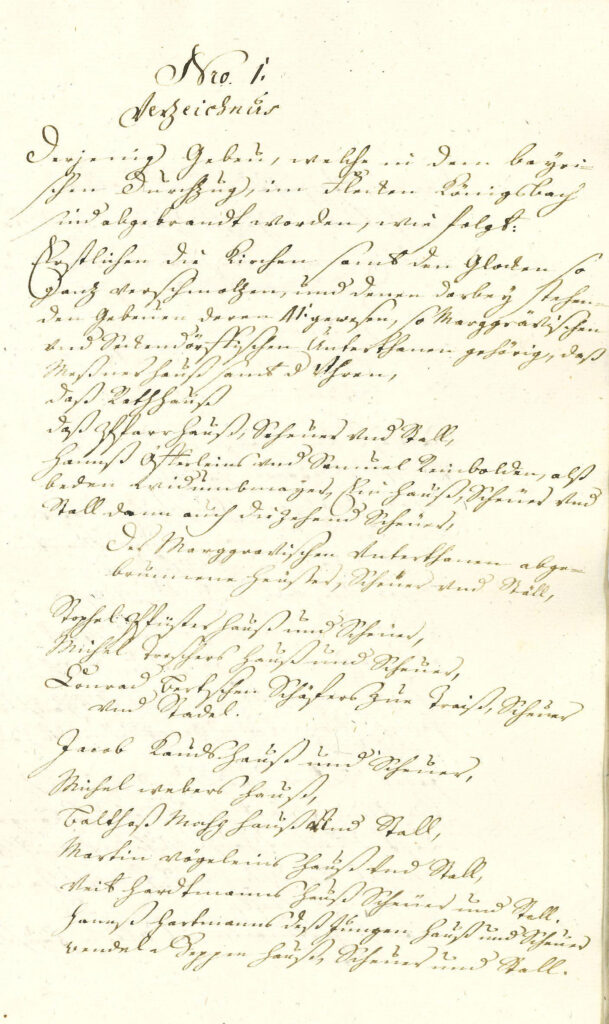 Nro. 1.
Verzeichnus
Derjenig Gebeu, welche in dem bayri-
schen Durchzug, im Flecken Königsbach
sind abgebrandt worden, wie folgt:
Erstlichen die Kirchen samt den Glocken so
ganz verschmoltzen, und denen darbey stehen-
den Gebeuen deren 11. gewesen, so Marggrävischen
vnd Unterthanen gehörig, daß
Meßners hauß samt d Uhren,
daß Rathhauß
daß Pfarrhauß, Scheuer vnd Stall,
Hannß vnd Samuel Reinbolden, alß
beden Widumbmayer, Ein Hauß, Scheuer vnd
Stall dann auch die zehend Scheuer,
Der Marggravischen Unterthanen abge-
brunnene Heusser, Scheuer vnd Ställ,
Stophel Pfüster Hauß und Scheuer,
Michel Hauß und Scheuer,
Conrad Schäffers Scheuer
vnd Stadel.
Jacob Hauß und Scheuer,
Michel webers Hauß,
Balthaß Hauß Vnd Stall,
Martin vögeleins Hauß vnd Stall,
Veit Hardtmanns Hauß Scheuer und Stall.
Hannß Hartmanns deß Jungen Hauß und Scheuer
wendele Hauß, Scheuer und Stall.